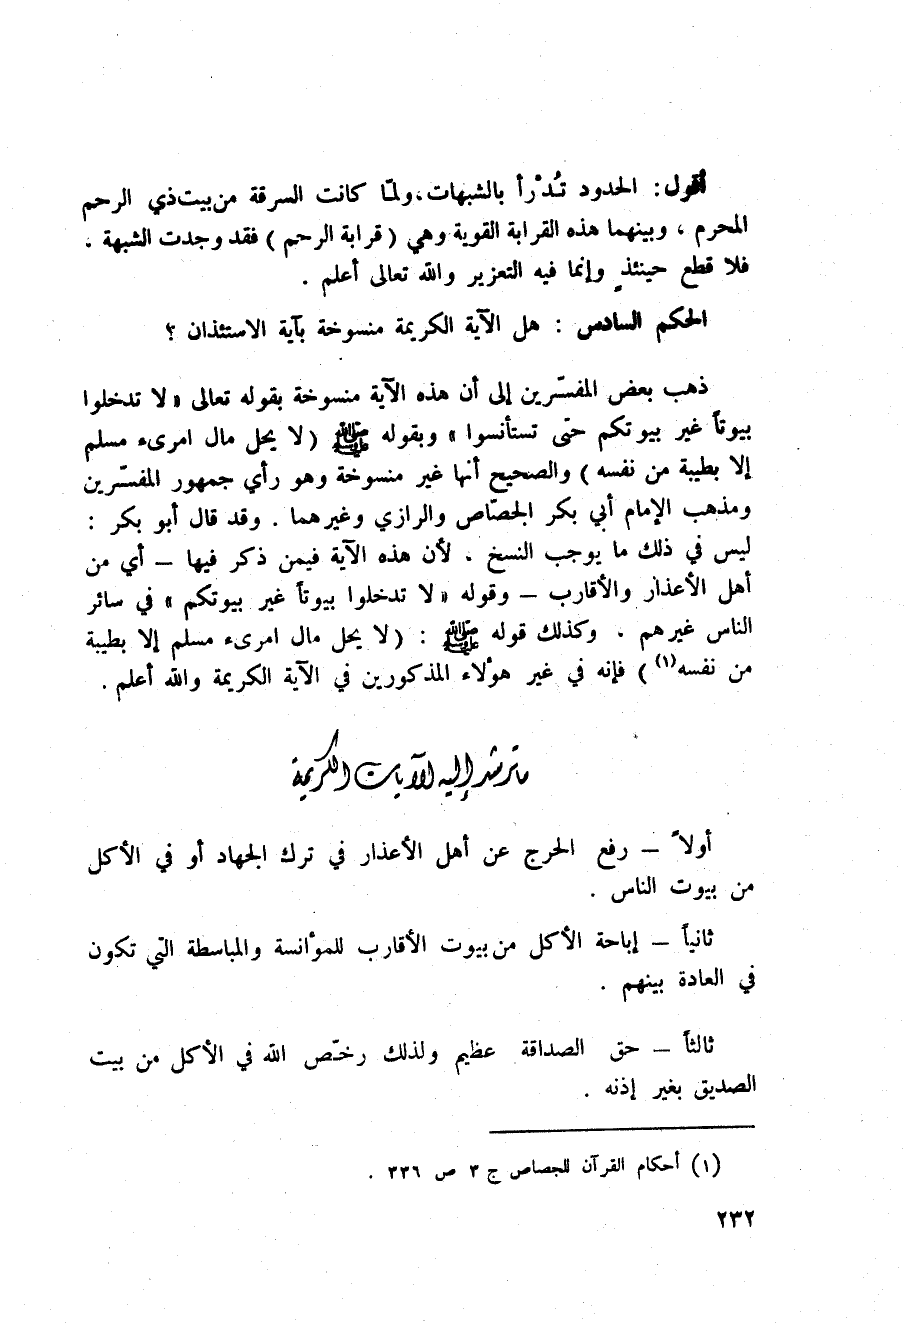 أقول : الحدود تُدْرأ بالشبهات ، ولمّا كانت السرقة من بيت ذي الرحم
المحرم ، وبينهما هذه القرابة القوية وهي ( قرابة الرحم ) فقد وجدت الشبهة .
فلا قطع حينئذٍ وإنما فيه التعزير والله تعالى أعلم .
الحكم السادس : هل الآية الكريمة منسوخة بآية الاستئذان ؟
ذهب بعض المفسّرين إلى أن هذه الآية منسوخة بقوله تعالى « لا تدخلوا
بيوتاً غير بيوتكم حتى تستأنسوا » وبقوله ﷺ ( لا يحل مال امرىء مسلم
إلا بطيبة من نفسه ) والصحيح أنها غير منسوخة وهو رأي جمهور المفسّرين
ومذهب الإمام أبي بكر الجصّاص والرازي وغيرهما . وقد قال أبو بكر :
ليس في ذلك ما يوجب النسخ . لأن هذه الآية فيمن ذكر فيها – أي من
أهل الأعذار والأقارب – وقوله « لا تدخلوا بيوتاً غير بيوتكم » في سائر
الناس غيرهم . وكذلك قوله ﷺ : ( لا يحل مال امرىء مسلم إلا بطيبة
من نفسه(١) ) فإنه في غير هؤلاء المذكورين في الآية الكريمة والله أعلم .
ما ترشد إليه الآيات الكريمة
أولاً – رفع الحرج عن أهل الأعذار في ترك الجهاد أو في الأكل
من بيوت الناس .
ثانياً – إباحة الأكل من بيوت الأقارب للمؤانسة والمباسطة التي تكون
في العادة بينهم .
ثالثاً – حق الصداقة عظيم ولذلك رخّص الله في الأكل من بيت
الصديق بغير إذنه .
(١) أحكام القرآن للجصاص ج ٣ ص ٣٣٦ .
٢٣٢